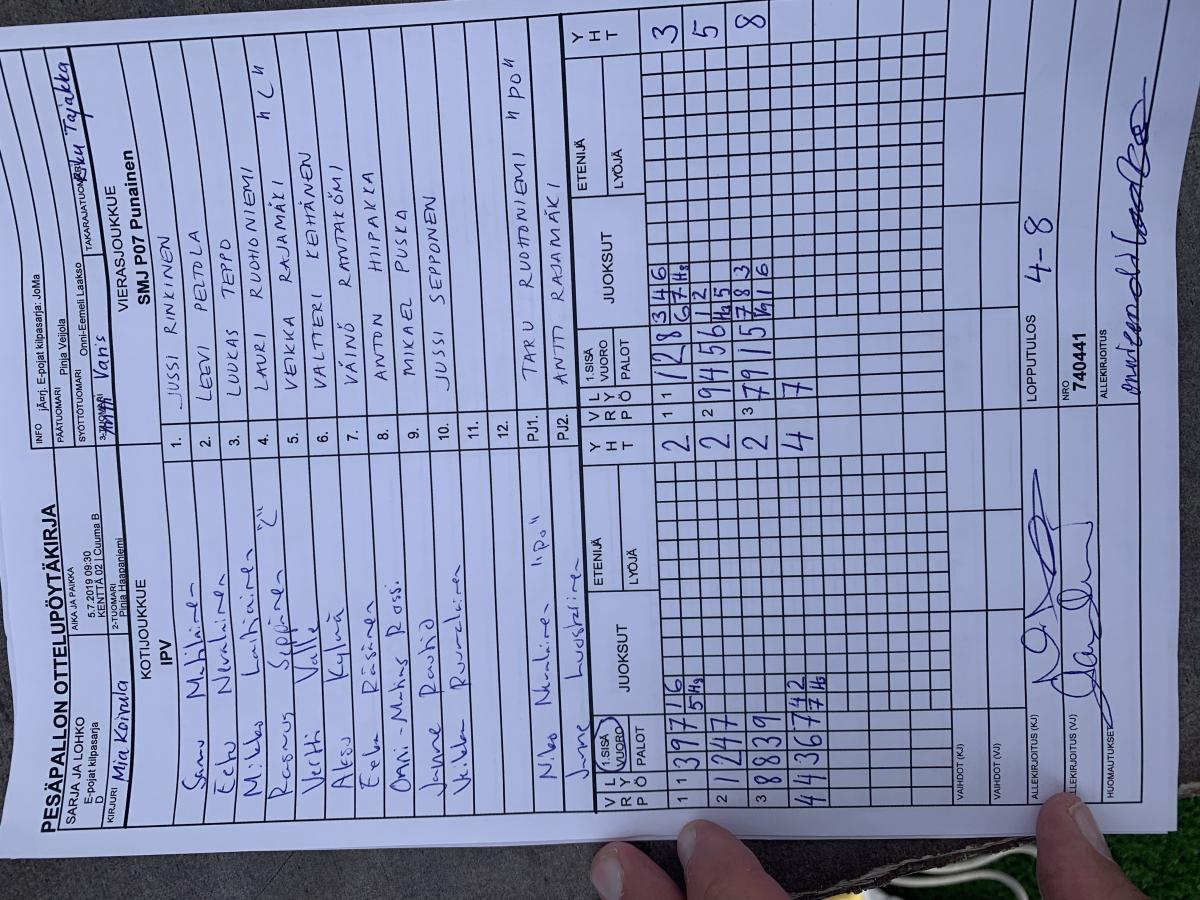 PESÄPALLON OTTELUPÖYTÄKIRJA
SARJA JA LOHKO
E-pojat kilpasarja
D
AIKA JA PAIKKA
5.7.2019 09:30
KENTTÄ 02 | Cuuma B
INFO jÃ¤rj. E-pojat kilpasarja: JoMa
PÄÄTUOMARI Pinja Veijola
SYÖTTÖTUOMARI Onni-Eemeli Laakso
KIRJURI Mia Koivula
2-TUOMARI
Pinja Haapaniemi
3-TUOMARI Vans
TAKARAJATUOMARI Riku Tajakka
KOTIJOUKKUE
IPV
VIERASJOUKKUE
SMJ P07 Punainen
Samu Matilainen 1. JUSSI RINKINEN
Eetu Nevalainen 2. LEEVI PELTOLA
Mikko Lautiainen 3. LUUKAS TEPPO
Rasmus Seppänen "C" 4. LAURI RUOHONIEMI "C"
Vertti Valle 5. VEIKKA RAJAMÄKI
Aksu Kylmä 6. VALTTERI KEIHÄNEN
Eeka Räsänen 7. VÄINÖ RANTAKÖMI
Onni-Matias Rossi 8. ANTON HIIPAKKA
Janne Rautio 9. MIKAEL PUSKA
Veikka Ruuralainen 10. JUSSI SEPPONEN
11.
12.
Niko Nevalainen "PO" PJ1. TARU RUOHONIEMI "PO"
Janne Luostarinen PJ2. ANTTI RAJAMÄKI
V R L Y P Ö 1.SISÄ VUORO PALOT JUOKSUT ETENIJÄ LYÖJÄ Y H T V R L Y P Ö 1.SISÄ VUORO PALOT JUOKSUT ETENIJÄ LYÖJÄ Y H T
1 1 3 9 7 1 6 2 1 1 1 2 8 3 4 6 3
5 Hs 6 7 Hs
2 1 2 4 7 2 2 9 4 5 6 1 2 5
Hs 5
3 8 8 3 9 2 3 7 9 1 5 7 8 3 8
1 6
4 4 3 6 7 7 4 2 4 7
7 Hs
VAIHDOT (KJ)
VAIHDOT (VJ)
ALLEKIRJOITUS (KJ)
LOPPUTULOS 4-8
ALLEKIRJOITUS (VJ)
NRO
740441
HUOMAUTUKSET
ALLEKIRJOITUS